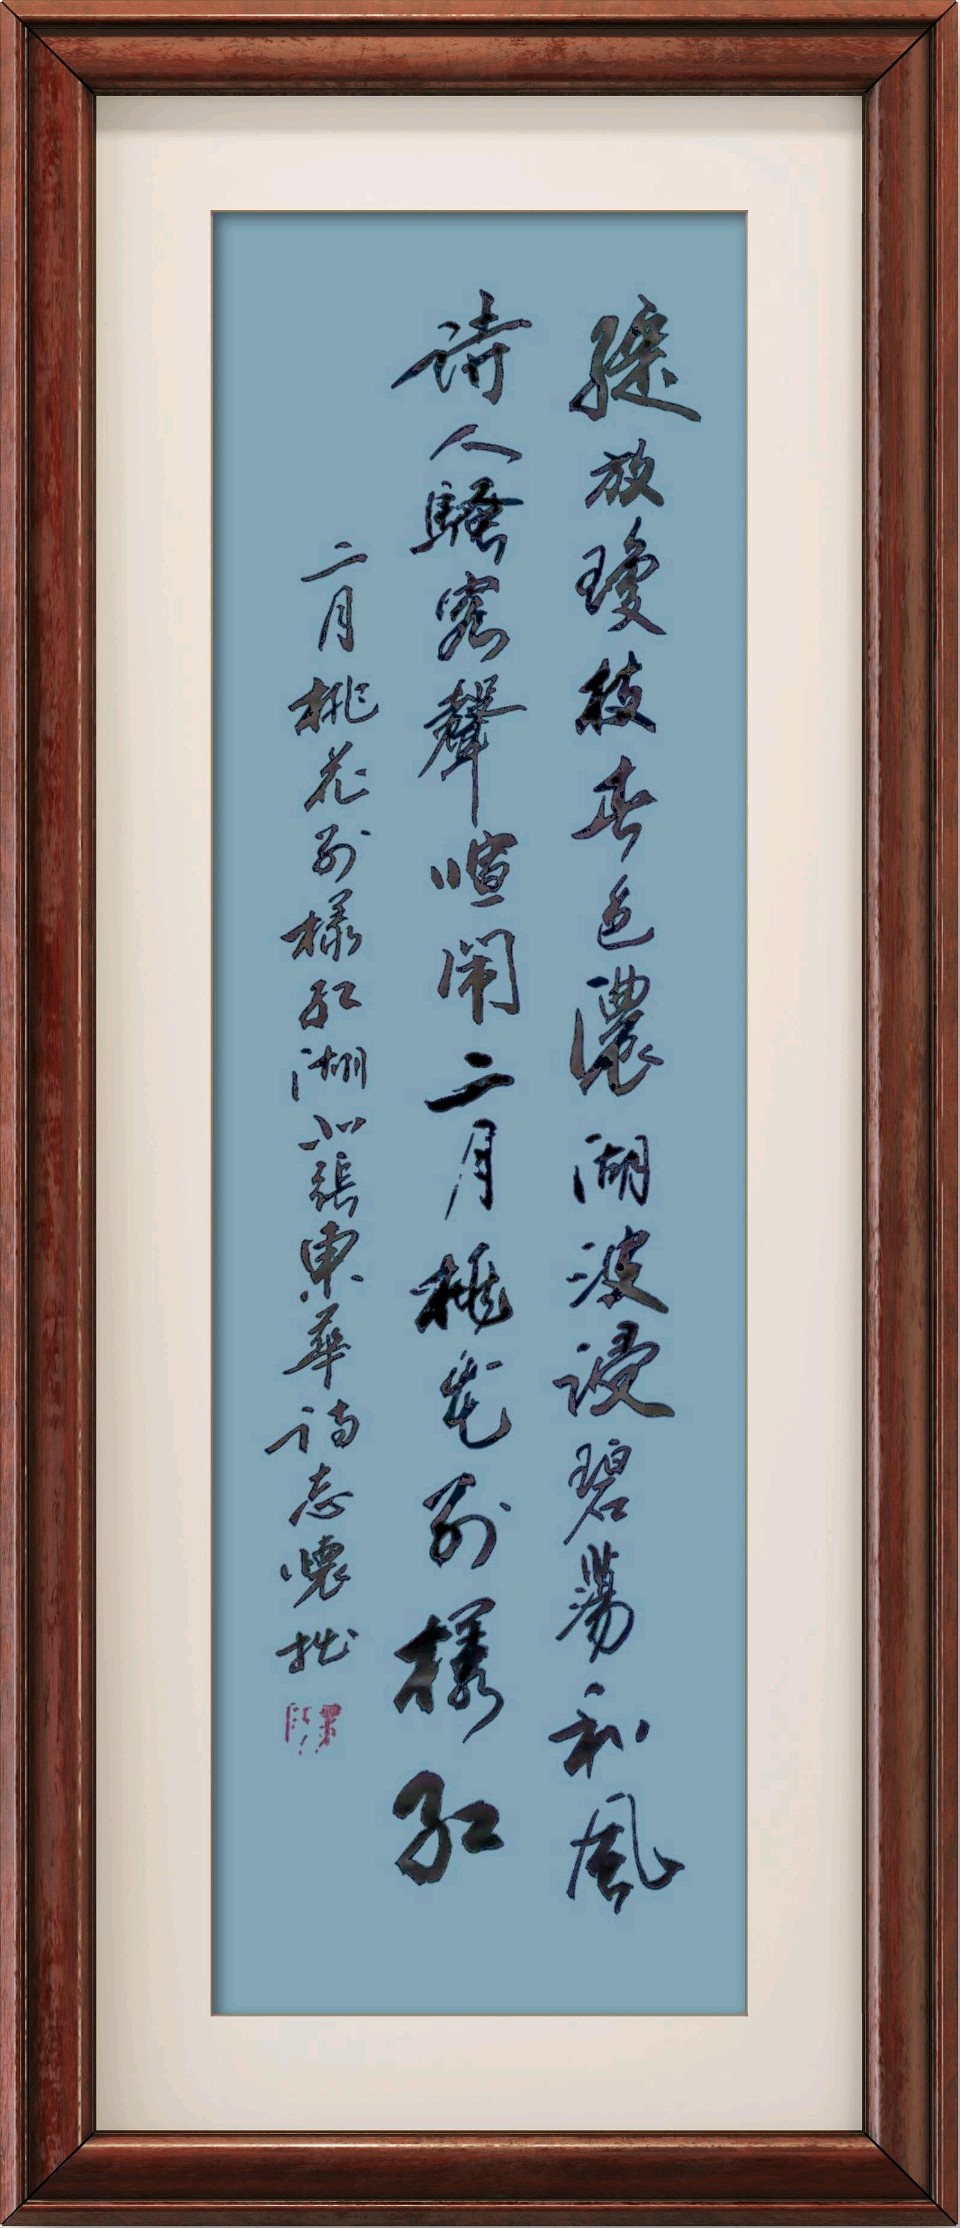 綻放瓊枝春色濃湖波浸碧蕩和風
詩人騷客聲喧闹二月桃花别樣紅
二月桃花别樣紅湖北張東華詩志懷拙